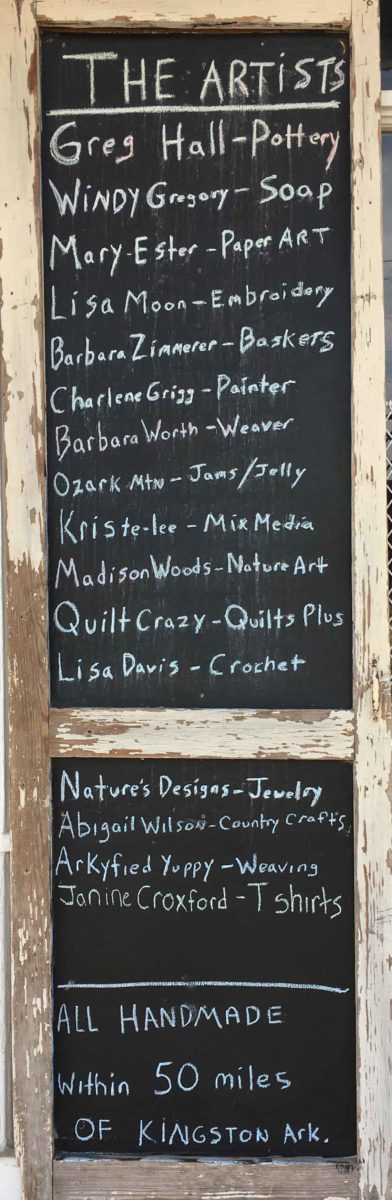 THE ARTISTS
Greg Hall - Pottery
WINDY Gregory - Soap
Mary-Ester - Paper ART
Lisa Moon - Embroidery
Barbara Zimmerer - Baskets
Charlene Grigg - Painter
Barbara Worth - Weaver
Ozark Mtn - Jams/Jelly
Kriste-lee - Mix Media
Madison Woods - Nature Art
Quilt Crazy - Quilts Plus
Lisa Davis - Crochet
Nature's Designs - Jewelry
Abigail Wilson - Country Crafts
Arkyfied Yuppy - Weaving
Janine Croxford - T shirts
ALL HANDMADE
Within 50 miles
OF KINGSTON Ark.